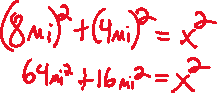 (8mi)²+(4mi)²=x²
64mi²+16mi²=x²